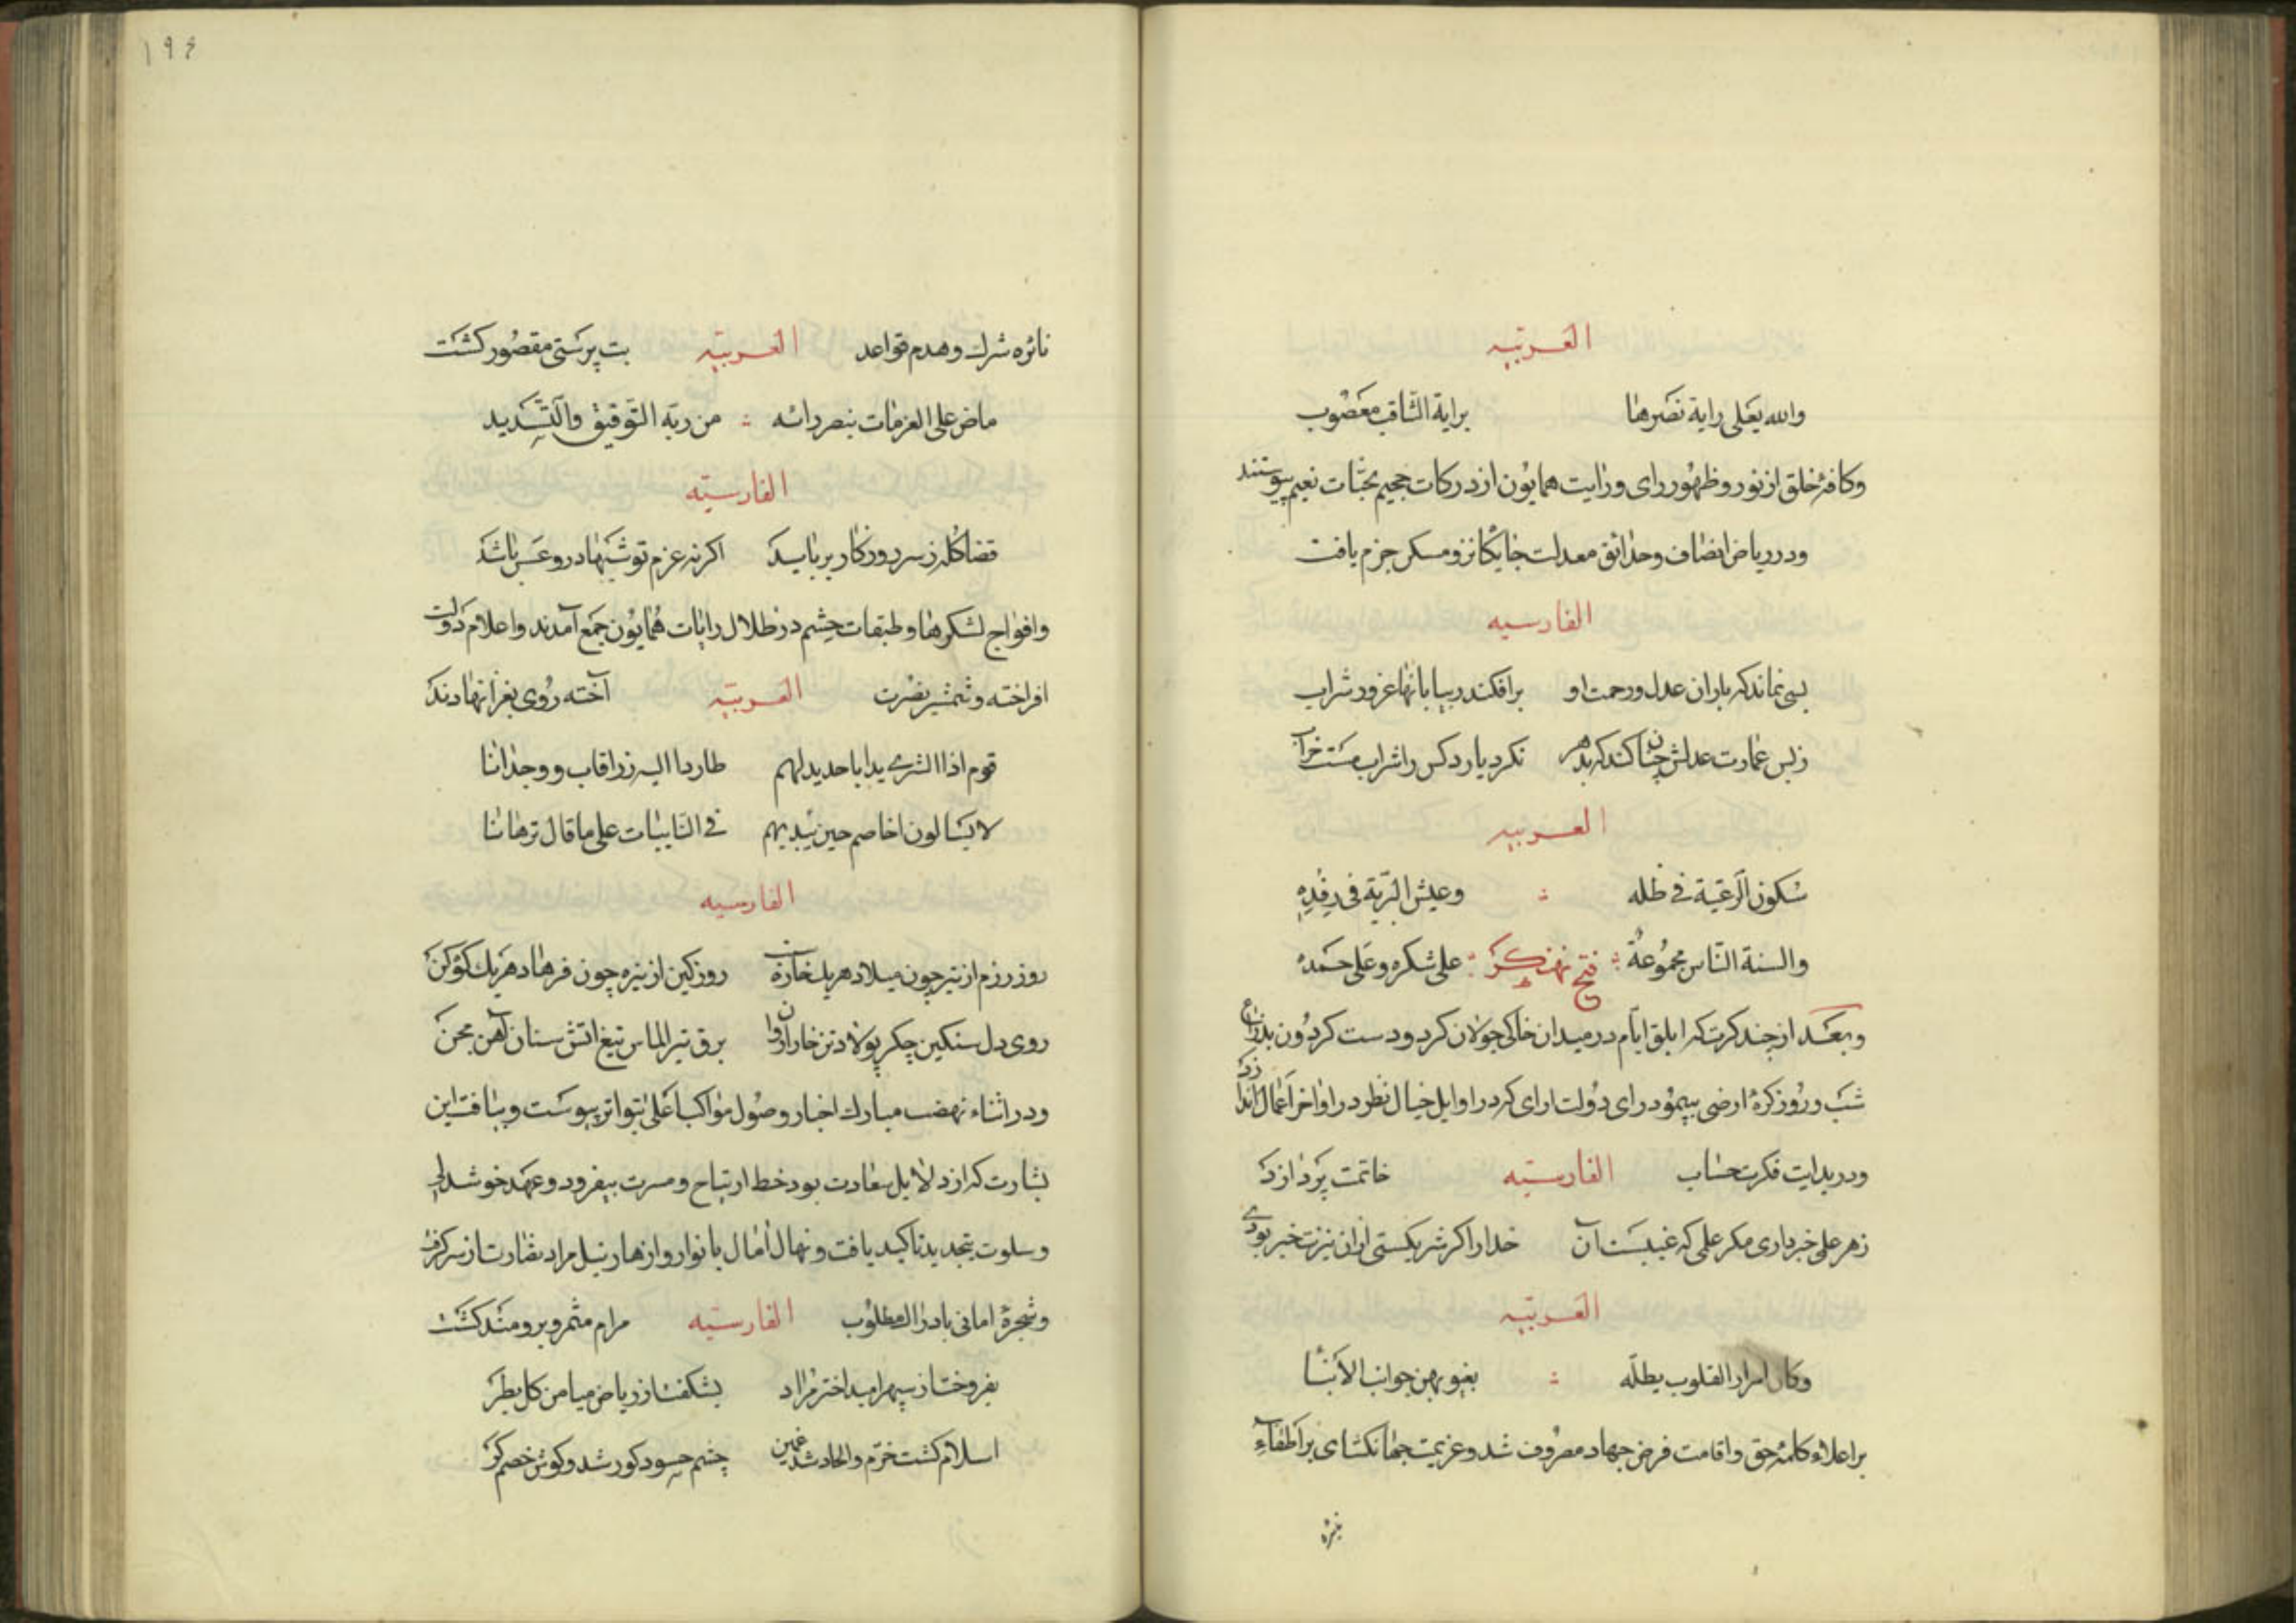 العربیّه
والله یعلی رایة نصرها برایة الثّاقب معصوب
وکافهٔ خلق از نور و ظهور رای ورایت همایون از درکات جحیم بجنّات نعیم پیوستند
ودر ریاض انصاف وحدائق معدلت جایگاه نزه ومسکن خرم یافت
الفارسیه
بسی نماند که باران عدل ورحمت او برافکند ز بیابانها غرور شراب
زبس عمارت عدلش چنان کند که بدهر نکرد یارد کس را شراب مست خراب
العربیه
سکون الرّعیّة فی ظله وعیش البریّة فی رفده
والسنة النّاس مجموعة علی شکره وعلی حمده
فتح نهنکر
وبعد از چند کرت که ابلق ایّام در میدان خاکی جولان کرد ودست کردون بذراع
شب وروز کرهٔ ارضی بپیمود رای دولت ارای که در اوایل خیال نظر در اواخر اعمال اندازد
ودر بدایت فکرت حساب الفارسیّه خاتمت پردازد
زهر علمی خبر داری مکر علمی که غیبست آن خدا را اکر شریکستی ازان نیزت خبر بودی
العربیّه
وکان اسرار القلوب یظلّه بغیوبهن جوانب الأنبا
بر اعلاء کلمهٔ حق واقامت فرض جهاد مصروف شد وعزیمت جهانکشای بر اطفاء
نائره
۱۹۴
نائره شرک وهدم قواعد العربیّه بت پرستی مقصور کشت
ماض علی العزمات ینصر رائه من ربّه التّوفیق والتّسدید
الفارسیّه
قضا کله ز سر روزکار برباید اکر نه عزم تو شبها درو عسس باشد
وافواج لشکرها وطبقات حشم در ظلال رایات همایون جمع آمدند واعلام دولت
افراخته وشمشیر نصرت العربیّه آخته روی بغزا نهادند
قوم اذا الشر یدا باحدید لهم طاردا الیه زراقاب ووحدانا
لا یسالون اخاهم حین یندبهم فی النّایبات علی ما قال برهانا
الفارسیه
روز رزم از تیر چون میلاد هر یک خازن روز کین از نیزه چون فرهاد هر یک کوه کن
روی دل سنکین جکر پولاد تن خارا روان برق تیر الماس تیغ اتش سنان آهن مجن
ودر اثناء نهضت مبارک اخبار وصول مواکب اعلی بتواتر پیوست وبیافت این
بشارت که از دلایل سعادت بود خط ارتیاح ومسرت بیفزود وعهد خوشدلی
وسلوت بتجدید تاکید یافت ونهال آمال بانوار وازهار نیل مراد نضارت از سر کرفت
وشجرهٔ امانی بادراک مطلوب الفارسیّه مرام مثمر وبرومند کشت
بفروخت از سپهر امید اختر مراد بشکفت از ریاض میامن کل بطر
اسلام کشت خرّم والحاد شد غمین چشم حسود کور شد وکوش خصم کر